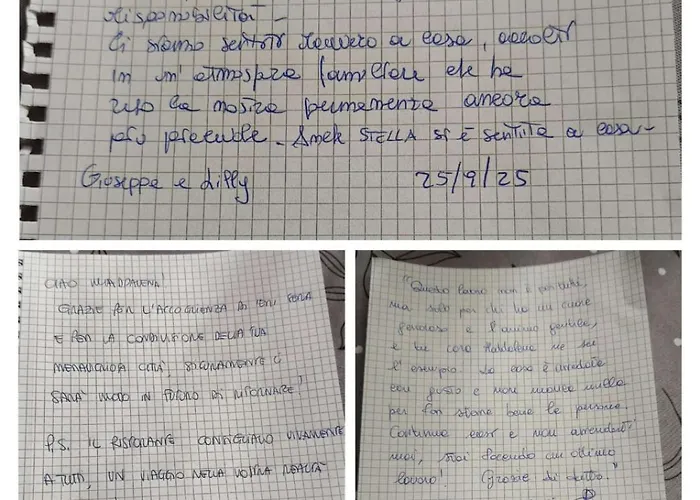 disponibilità -
Ci siamo sentiti davvero a casa, accolti
in un'atmosfera familiare che ha
reso la nostra permanenza ancora
più piacevole. Anche STELLA si è sentita a casa -
Giuseppe e Lilly 25/9/25
CIAO MADDALENA!
GRAZIE PER L'ACCOGLIENZA DI
E PER LA CONDIVISIONE DELLA TUA
MERAVIGLIOSA CITTÀ, SICURAMENTE CI
SARÀ MODO IN FUTURO DI RITORNARE!
P.S. IL RISTORANTE CONSIGLIATO VIVAMENTE
A TUTTI, UN VIAGGIO NELLA VOSTRA REALTÀ
"Questo lavoro non è per tutti,
ma solo per chi ha un cuore
generoso e l'animo gentile,
e tu cara Maddalena ne sei
l'esempio. La casa è arredata
con gusto e non manca nulla
per far stare bene le persone.
Continua così e non arrenderti
mai, stai facendo un ottimo
lavoro! Grazie di tutto."